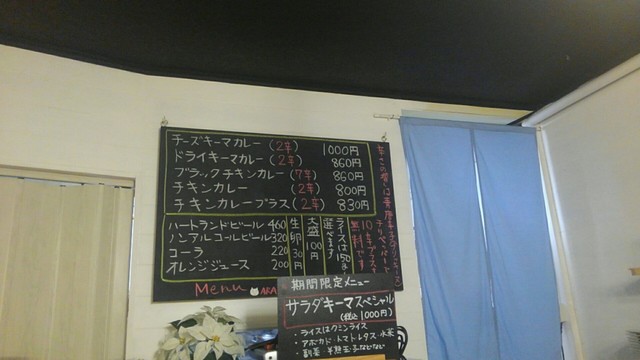 チーズキーマカレー(2辛) 1000円
ドライキーマカレー(2辛) 860円
ブラックチキンカレー(7辛) 860円
チキンカレー (2辛) 800円
チキンカレープラス(2辛) 830円
ハートランドビール 460
ノンアルコールビール 320
コーラ 220
オレンジジュース 200
生卵 30円
大盛 100円
ライスは150g
選べます
10辛プラス
無料です
Menu
期間限定メニュー
サラダキーマスペシャル
(税込1000円)
・ライスはクミンライス
・アボカド・トマト・レタス・水菜
・半熟玉子などなど